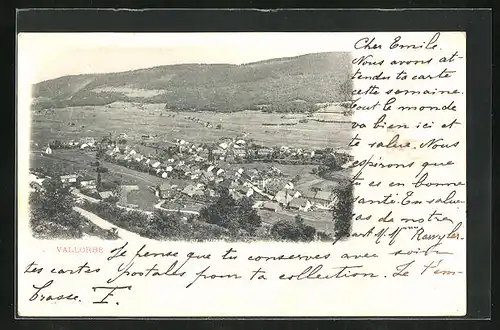 VALLORBE
Cher Emile
Nous avons at-
tendu ta carte
cette semaine.
Tout le monde
va bien ici et
te salue. Nous
espérons que
tu es en bonne
santé. En salue
de notre
part Mr Mme Rawyler.
Je pense que tu conserves avec soin
tes cartes postales pour ta collection. Je t'em-
brasse. F.